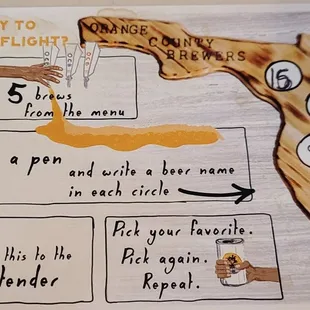 Y TO
FLIGHT?
ORANGE
COUNTY
BREWERS
5 brews
from the menu
15
a pen
and write a beer name
in each circle
this to the
tender
Pick your favorite.
Pick again.
Repeat.